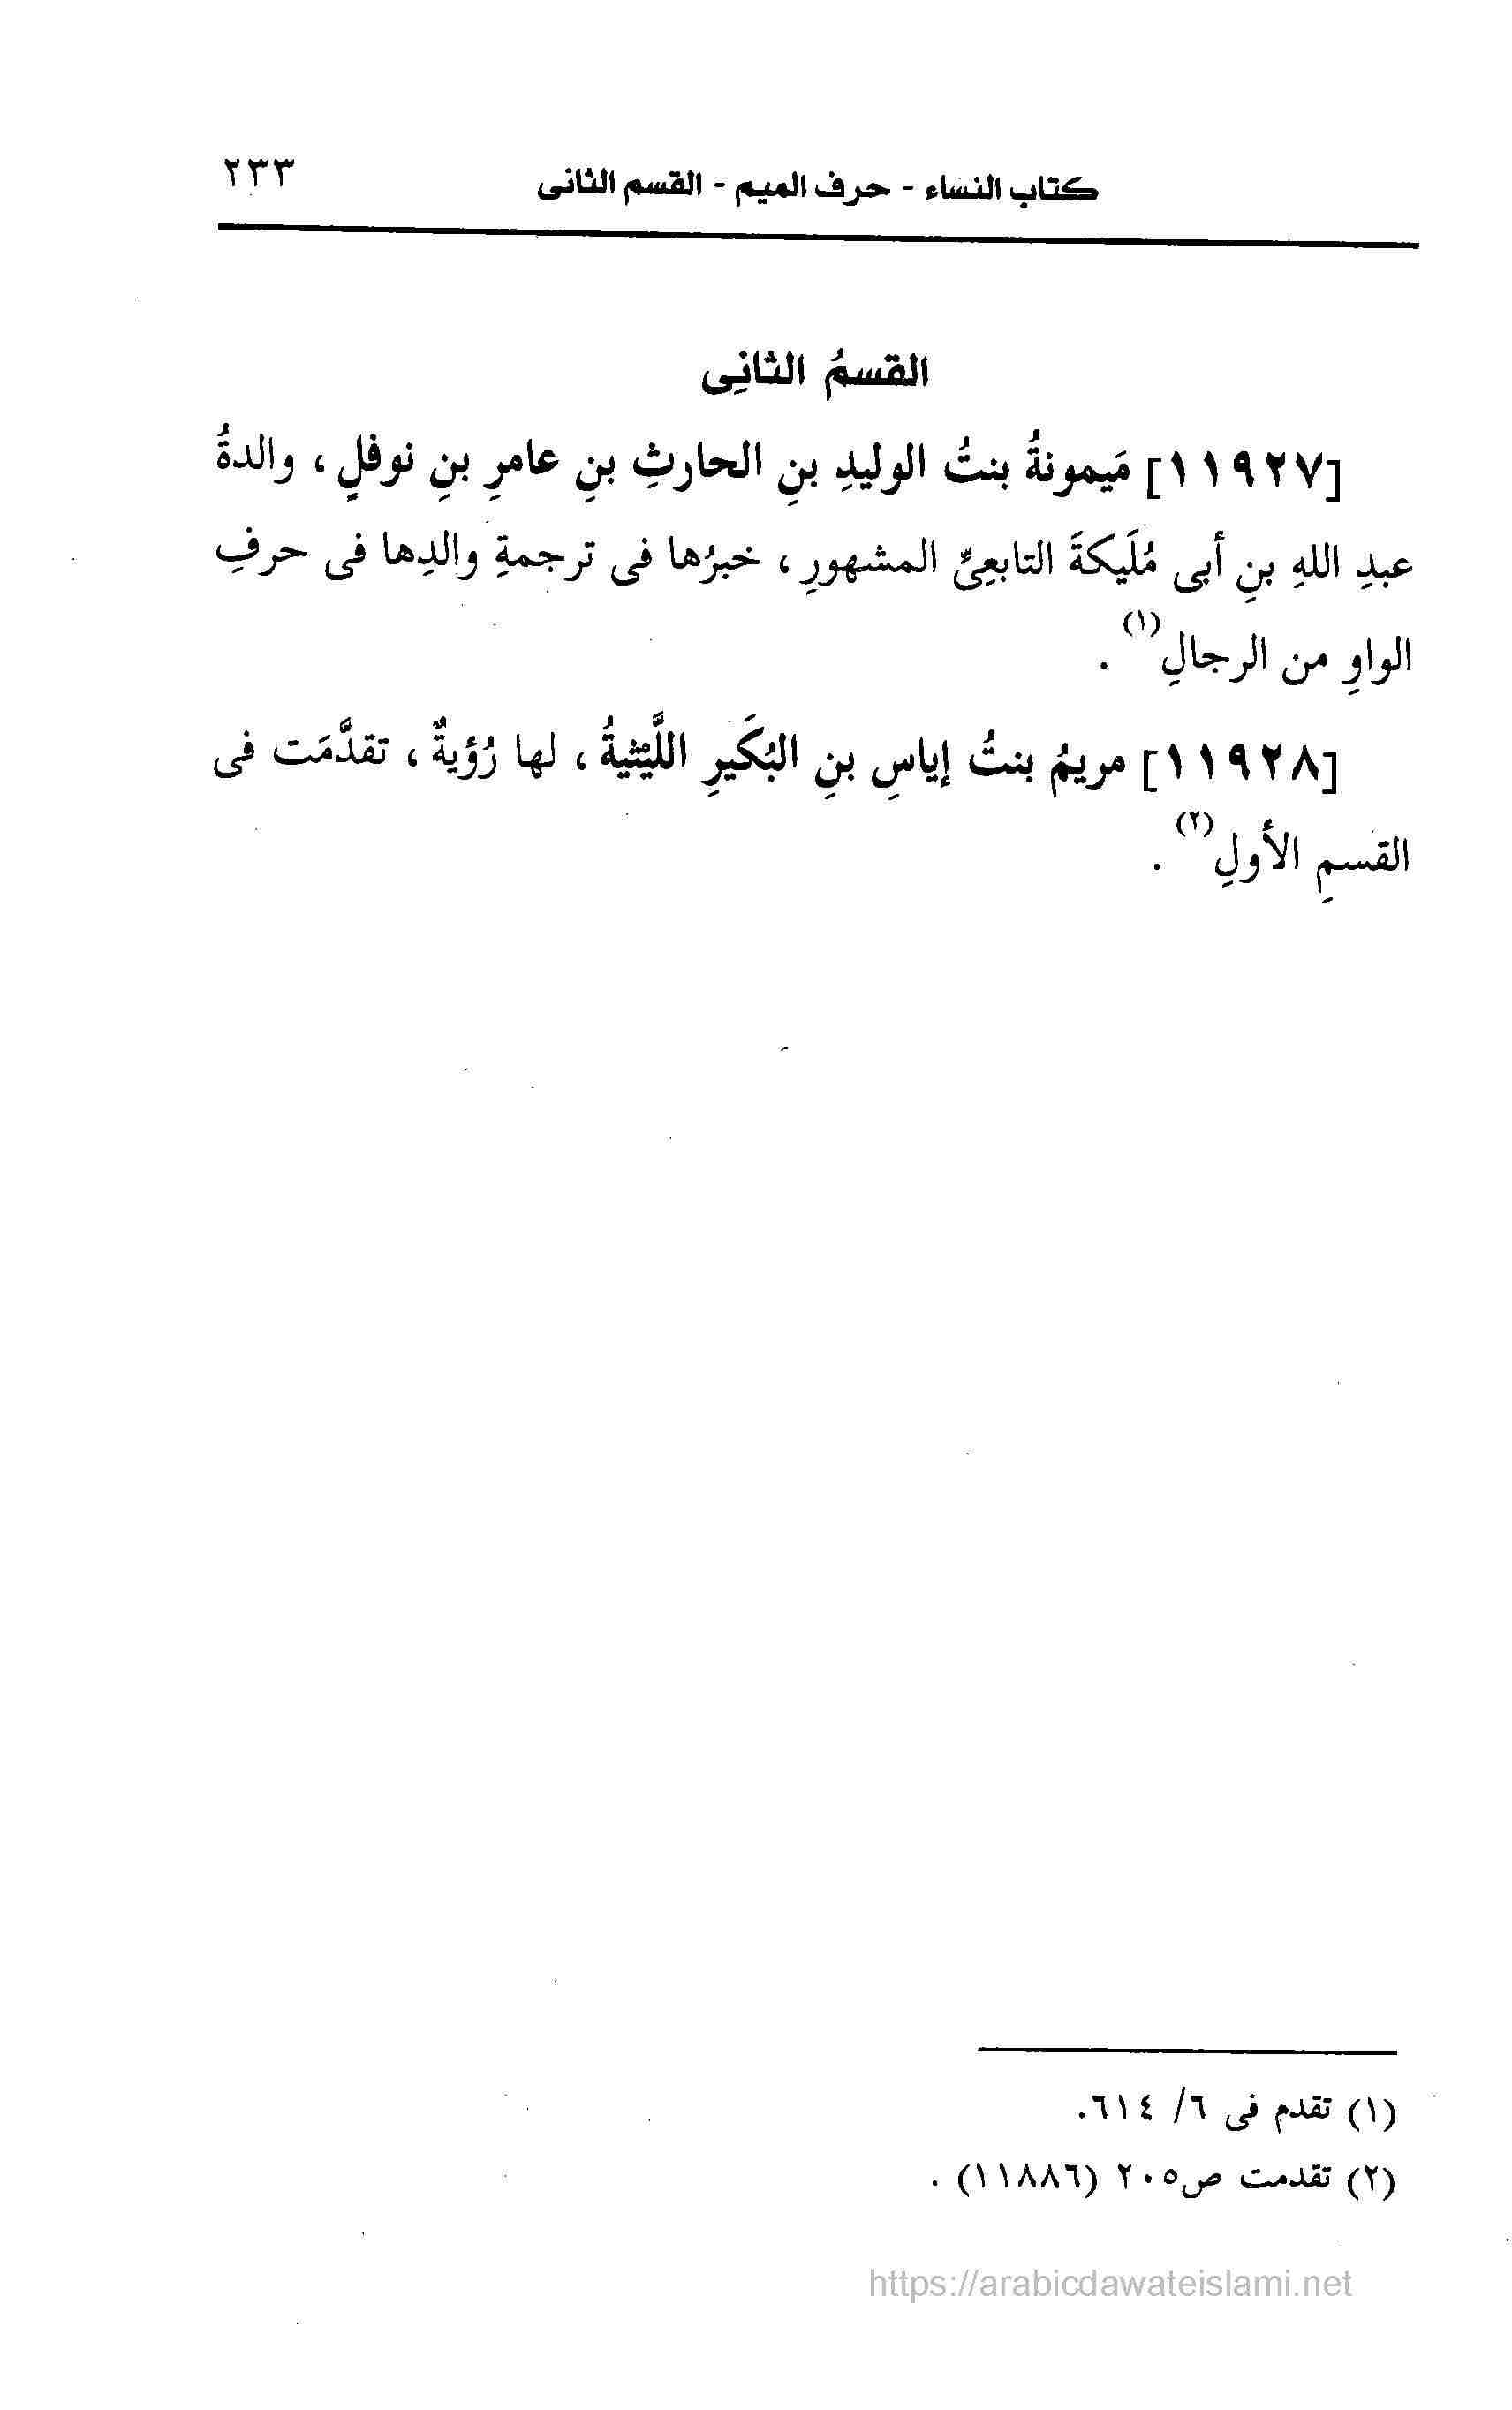 كتاب النساء - حرف الميم - القسم الثانى ٢٣٣
القسمُ الثانِى
[١١٩٢٧] مَيمونةُ بنتُ الوليدِ بنِ الحارثِ بنِ عامرِ بنِ نوفلٍ ، والدةُ
عبدِ اللهِ بنِ أبى مُلَيكةَ التابعِىِّ المشهورِ ، خبرُها فى ترجمةِ والدِها فى حرفِ
الواوِ من الرجالِ(١) .
[١١٩٢٨] مريمُ بنتُ إياسِ بنِ البُكَيرِ اللَّيْثيةُ ، لها رُؤيةٌ ، تقدَّمَت فى
القسمِ الأولِ(٢) .
(١) تقدم فى ٦/ ٦١٤.
(٢) تقدمت ص٢٠٥ (١١٨٨٦) .
https://arabicdawateislami.net